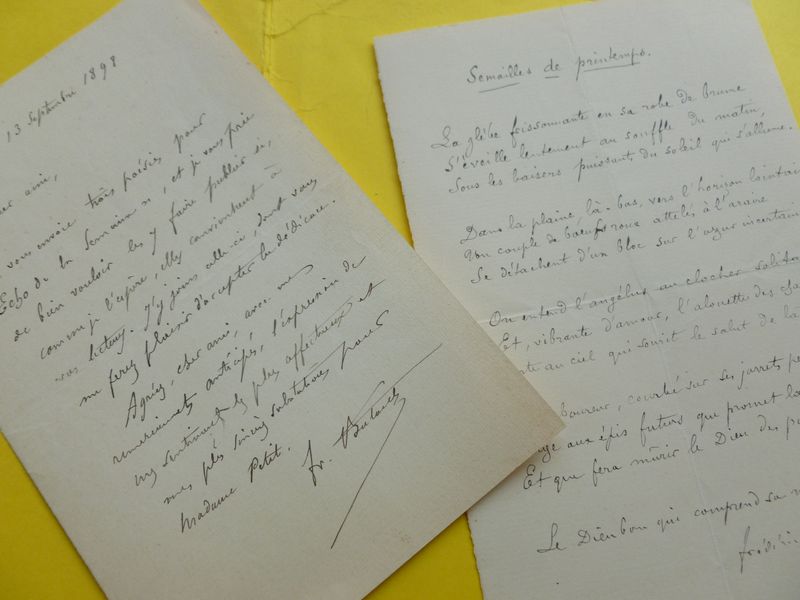 13 Septembre 1898
ami,
vous envoie trois poésies pour
Echo de la Semaine », et je vous prie
de bien vouloir les y faire publier si,
comme je l'espère, elles conviennent à
vos lecteurs. J'y joins celle-ci, dont vous
me ferez plaisir d'accepter la dédicace.
Agréez, cher ami, avec mes
remerciements anticipés, l'expression de
mes sentiments les plus affectueux et
mes plus sincères salutations pour
Madame Petit.
fr.
Semailles de printemps.
La glèbe frissonnante en sa robe de brume
S'éveille lentement au souffle du matin,
Sous les baisers puissants du soleil qui s'allume.
Dans la plaine, là-bas, vers l'horizon lointain
Un couple de bœufs roux attelés à l'araire
Se détachent d'un bloc sur l'azur incertain
On entend l'angélus au clocher
Et, vibrante d'amour, l'alouette des
au ciel qui sourit le salut de la
courbé sur ses jarrets
aux épis futurs que promet
Et que fera mûrir le Dieu des
Le Dieu bon qui comprend sa